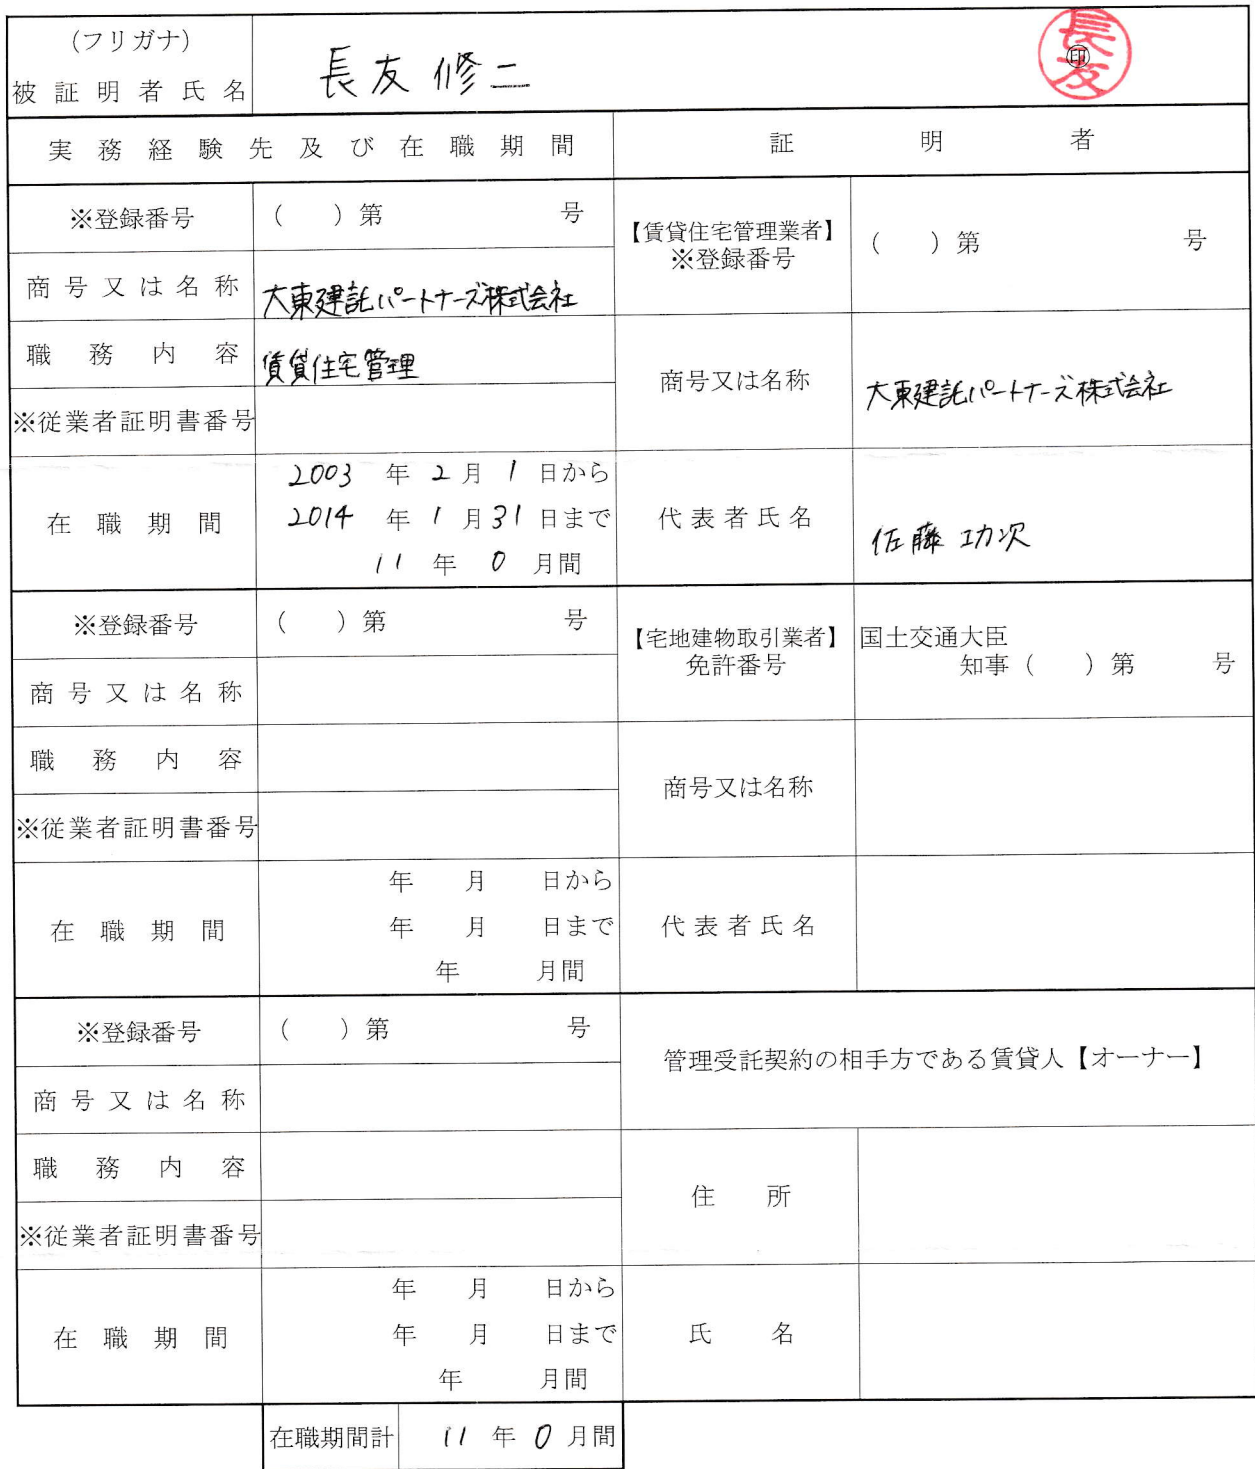 (フリガナ)
被証明者氏名 長友 修二 ㊞ 長友
実務経験先及び在職期間 証明者
※登録番号 ( ) 第 号
【賃貸住宅管理業者】
※登録番号 ( ) 第 号
商号又は名称 大東建託パートナーズ株式会社
職務内容 賃貸住宅管理
商号又は名称 大東建託パートナーズ株式会社
※従業者証明書番号
在職期間
2003 年 2 月 1 日から
2014 年 1 月 31 日まで
11 年 0 月間
代表者氏名 佐藤 功次
※登録番号 ( ) 第 号
【宅地建物取引業者】
免許番号
国土交通大臣
知事 ( ) 第 号
商号又は名称
職務内容
商号又は名称
※従業者証明書番号
在職期間
年 月 日から
年 月 日まで
年 月間
代表者氏名
※登録番号 ( ) 第 号
管理受託契約の相手方である賃貸人【オーナー】
商号又は名称
職務内容
住所
※従業者証明書番号
在職期間
年 月 日から
年 月 日まで
年 月間
氏名
在職期間計 11 年 0 月間